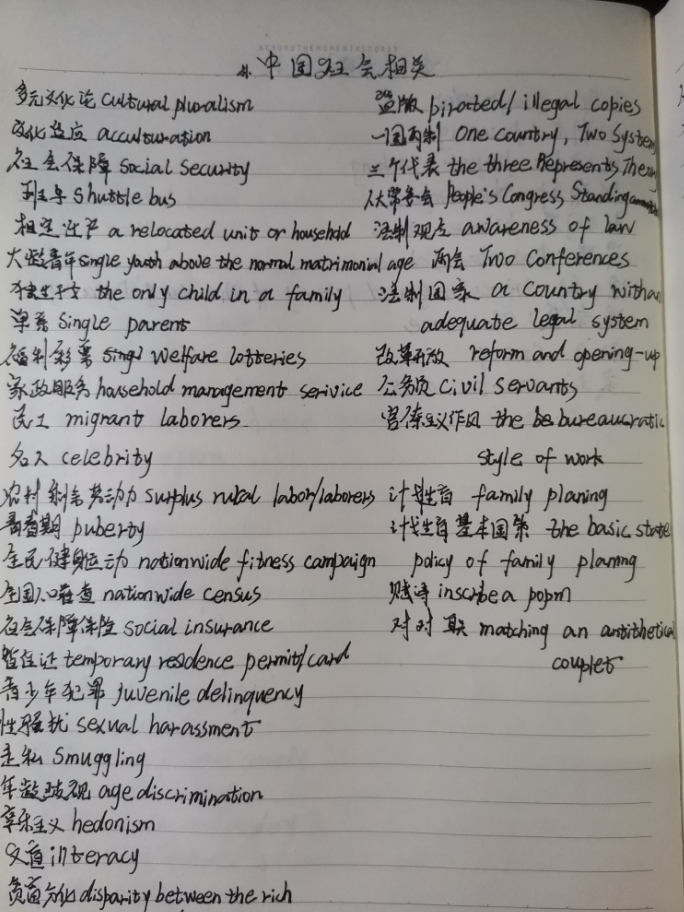 4. 中国社会相关
多元文化论 cultural pluralism
文化适应 acculturation
社会保障 social security
班车 shuttle bus
拆迁户 a relocated unit or household
大龄青年 single youth above the normal matrimonial age
独生子女 the only child in a family
单亲 single parent
福利彩票 welfare lotteries
家政服务 household management serivice
民工 migrant laborers
名人 celebrity
农村剩余劳动力 surplus rural labor/laborers
青春期 puberty
全民健身运动 nationwide fitness campaign
全国人口普查 nationwide census
社会保障保险 social insurance
暂住证 temporary residence permit/card
青少年犯罪 juvenile delinquency
性骚扰 sexual harassment
走私 smuggling
年龄歧视 age discrimination
享乐主义 hedonism
文盲 illiteracy
贫富分化 disparity between the rich
盗版 pirated/illegal copies
一国两制 One country, Two System
三个代表 the three Represents Theory
人大常委会 People's Congress Standing
法制观念 awareness of law
两会 Two Conferences
法制国家 a country with an
adequate legal system
改革开放 reform and opening-up
公务员 civil servants
官僚主义作风 the bureaucratic
style of work
计划生育 family planing
计划生育基本国策 the basic state
policy of family planing
赋诗 inscribe a popm
对对联 matching an antithetical
couplet